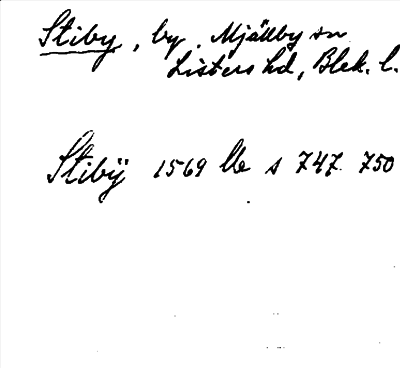 Stiby, by, Mjällby sn
Listers hd, Blek. l.
Stibÿ 1569 lb s 747 750